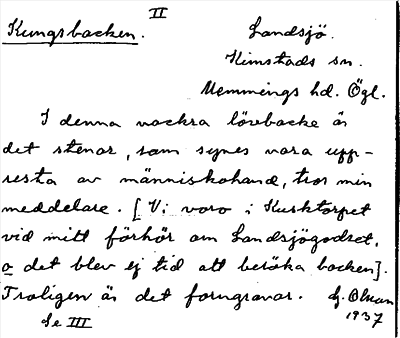 II
Kungsbacken. Landsjö.
Kimstads sn.
Memmings hd. Ögl.
I denna vackra lövbacke är
det stenar, som synes vara upp-
resta av människohand, tror min
meddelare. [Vi voro i Kusktorpet
vid mitt förhör om Landsjögodset,
o det blev ej tid att besöka backen].
Troligen är det forngravar. G. Olsson
Se III 1937